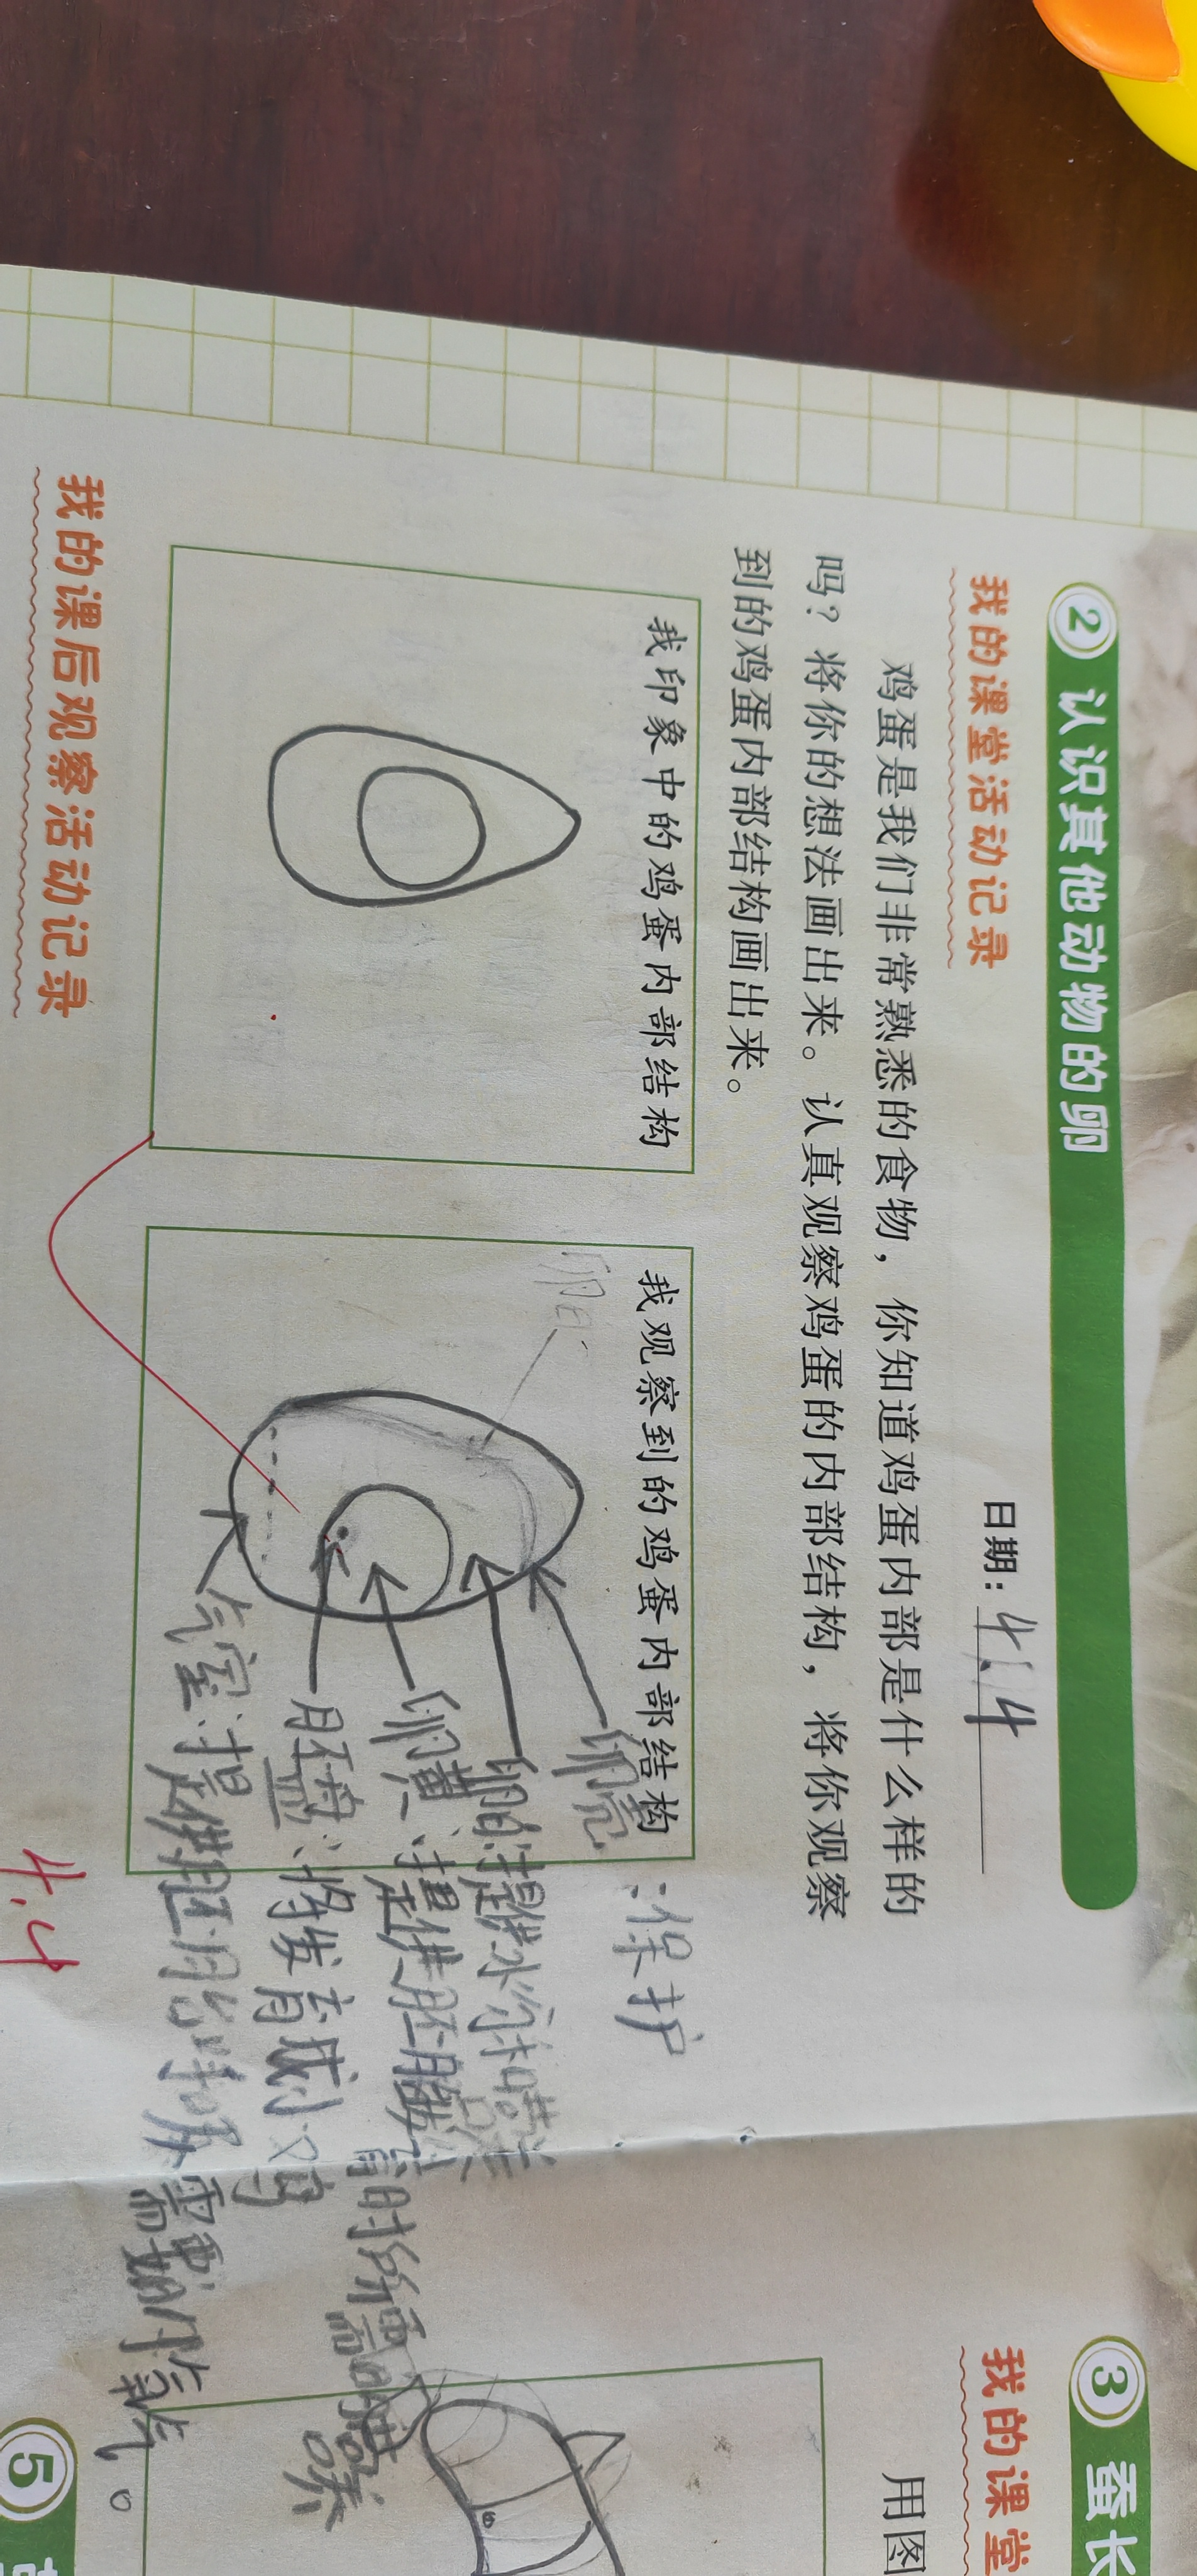 ② 认识其他动物的卵
我的课堂活动记录
日期：4.4
鸡蛋是我们非常熟悉的食物，你知道鸡蛋内部是什么样的
吗？将你的想法画出来。认真观察鸡蛋的内部结构，将你观察
到的鸡蛋内部结构画出来。
我印象中的鸡蛋内部结构
我观察到的鸡蛋内部结构
卵白
卵壳：保护
卵白：提供水分和营养
卵黄：提供胚胎发育时所需的营养
胚盘：将发育成小鸡
气室：提供胚胎呼吸需要的氧气。
我的课后观察活动记录
4.4
③ 蚕长
我的课堂
用图
⑤